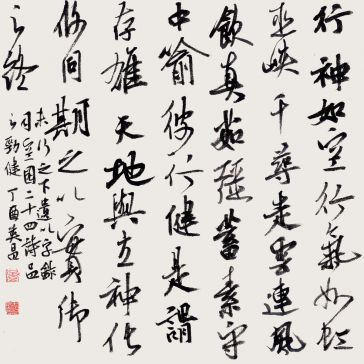 行神如空行氣如虹
巫峽千尋走雲連風
飲真茹強蓄素守
中喻彼行健是謂
存雄天地與立神化
攸同期之以實御
之終
末行之下遺以字錄
司空圖二十四詩品
之勁健 丁酉英昌